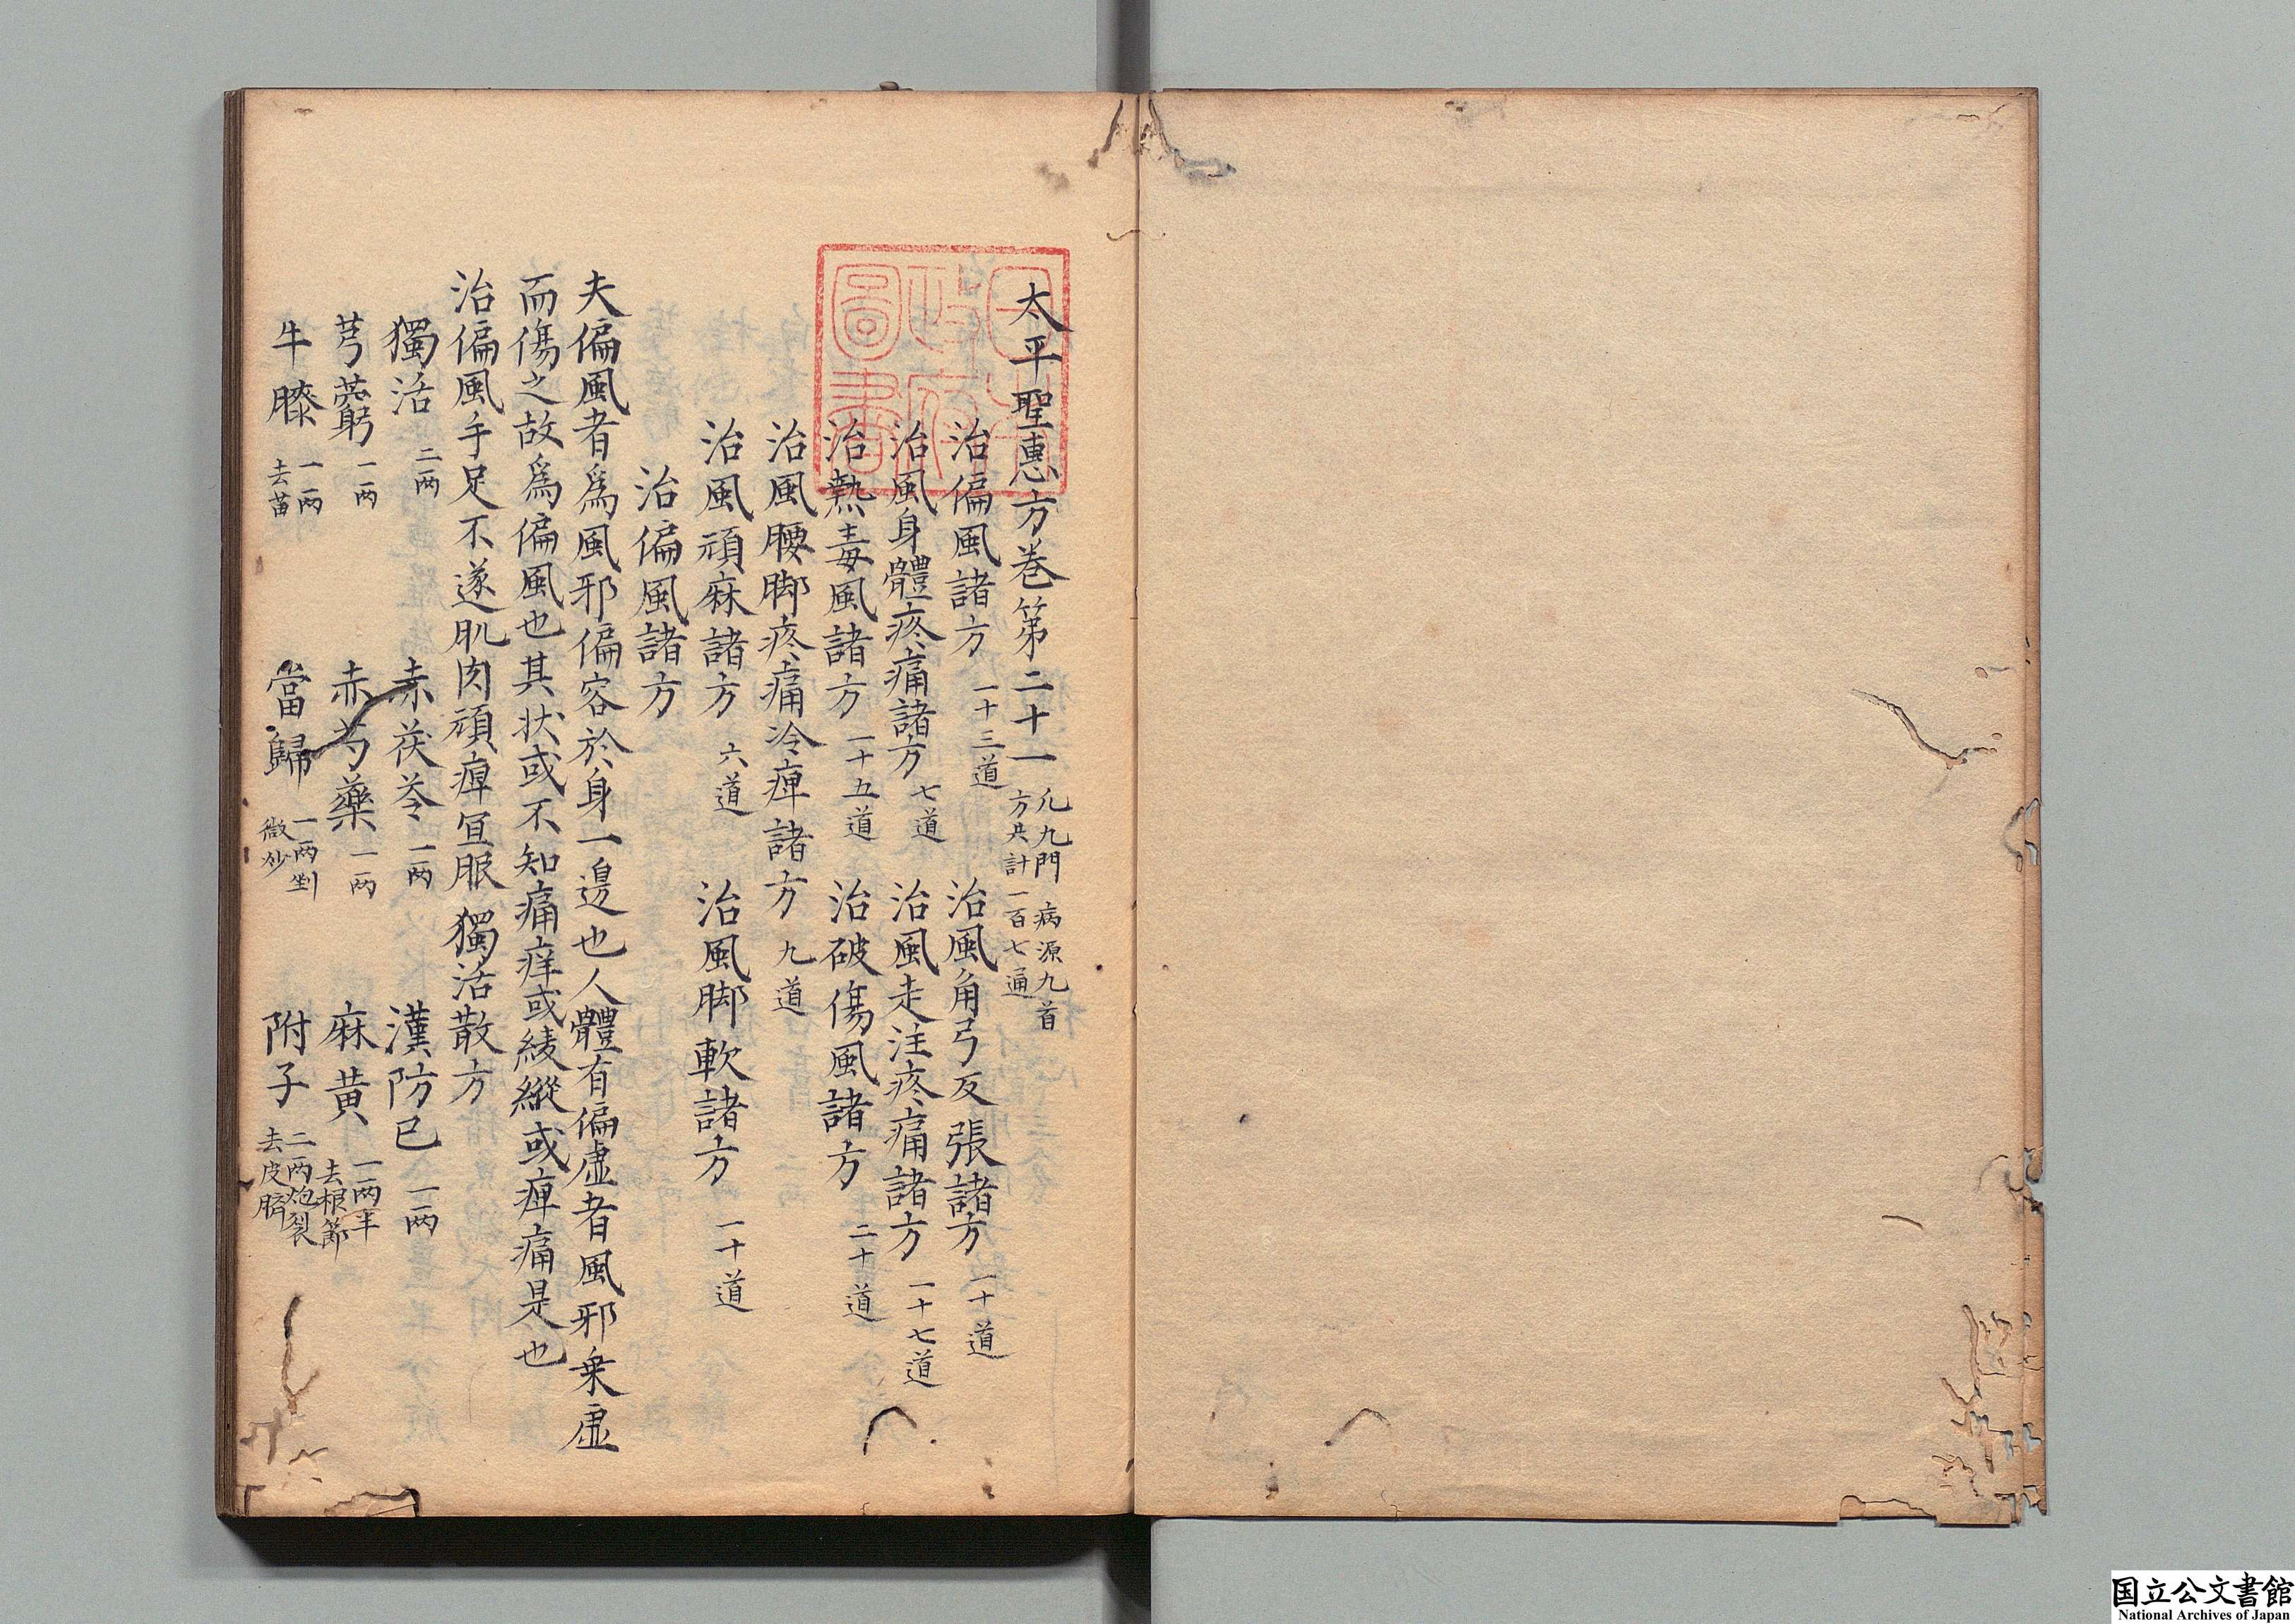 太平聖惠方卷第二十一 凢九門 病源九首 方共計一百七通
治偏風諸方 一十三道 治風角弓反張諸方 一十道
治風身體疼痛諸方 七道 治風走注疼痛諸方 一十七道
治熱毒風諸方 一十五道 治破傷風諸方 二十道
治風腰脚疼痛冷痺諸方 九道
治風頑麻諸方 六道 治風脚軟諸方 一十道
治偏風諸方
夫偏風者爲風邪偏容於身一邊也人體有偏虛者風邪乗虛
而傷之故爲偏風也其状或不知痛痒或綾縱或痺痛是也
治偏風手足不遂肌肉頑痺冝服獨活散方
獨活 二两 赤茯苓 一两 漢防已 一两
芎藭 一两 赤芍藥 一两 麻黄 一两半去根節
牛膝 一两去苗 當歸 一两剉微炒 附子 二两炮裂去皮臍
日本政府圖書
国立公文書館
National Archives of Japan